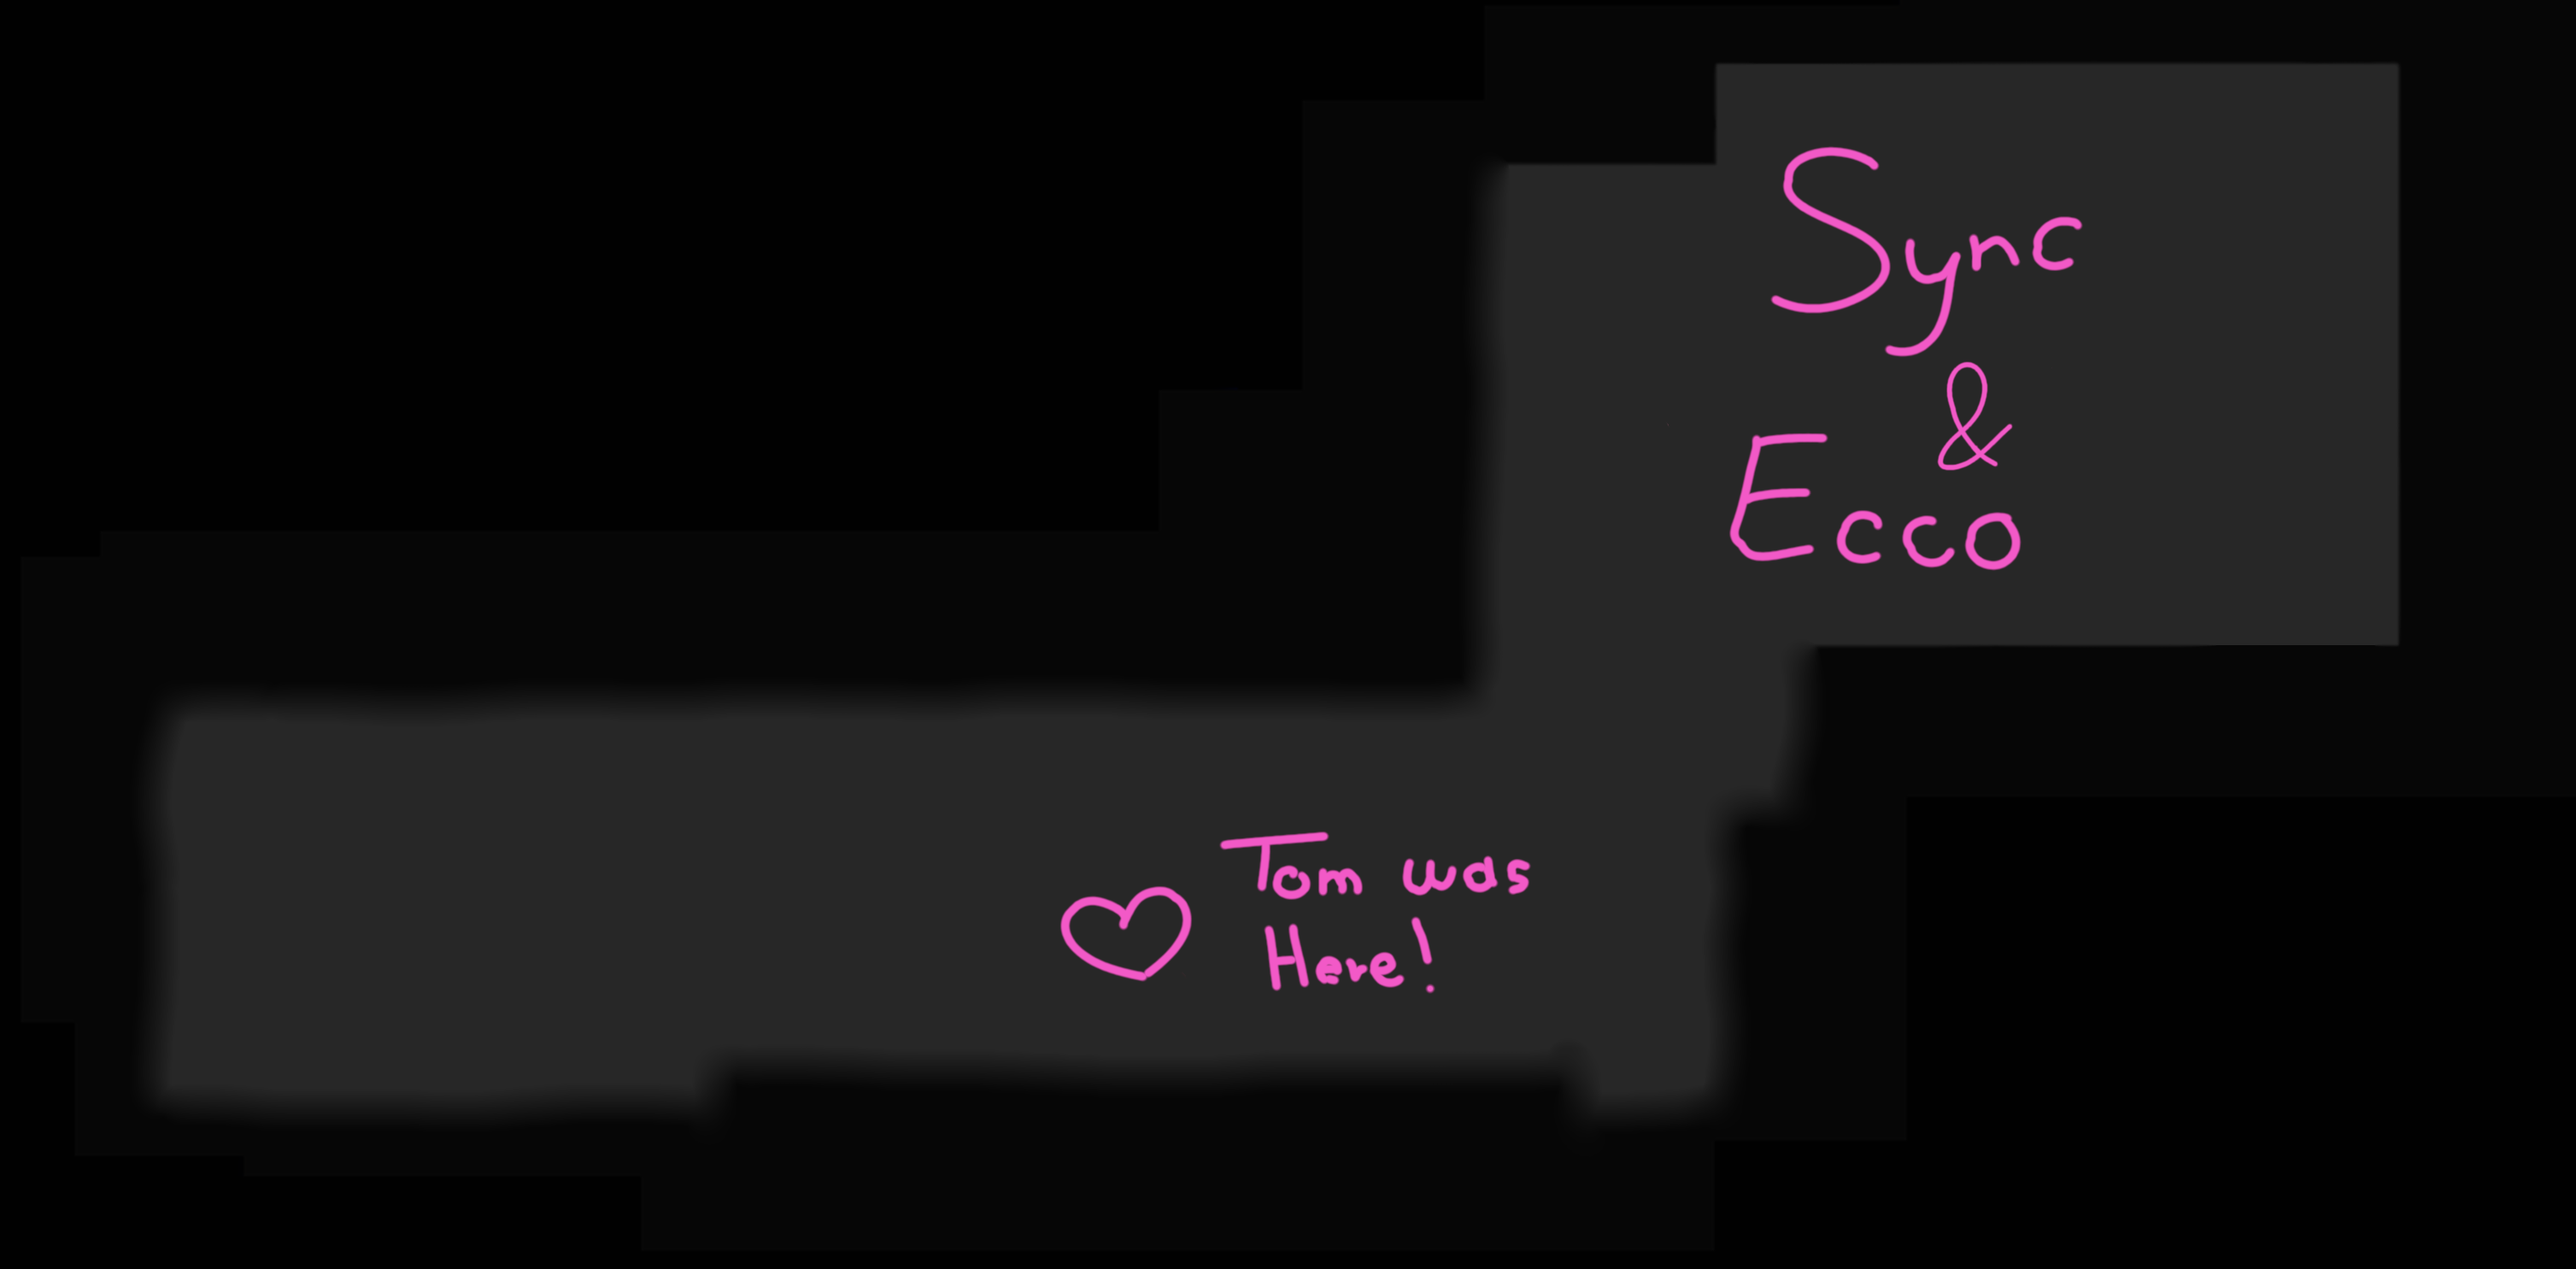 Sync
&
Ecco
Tom was
Here!